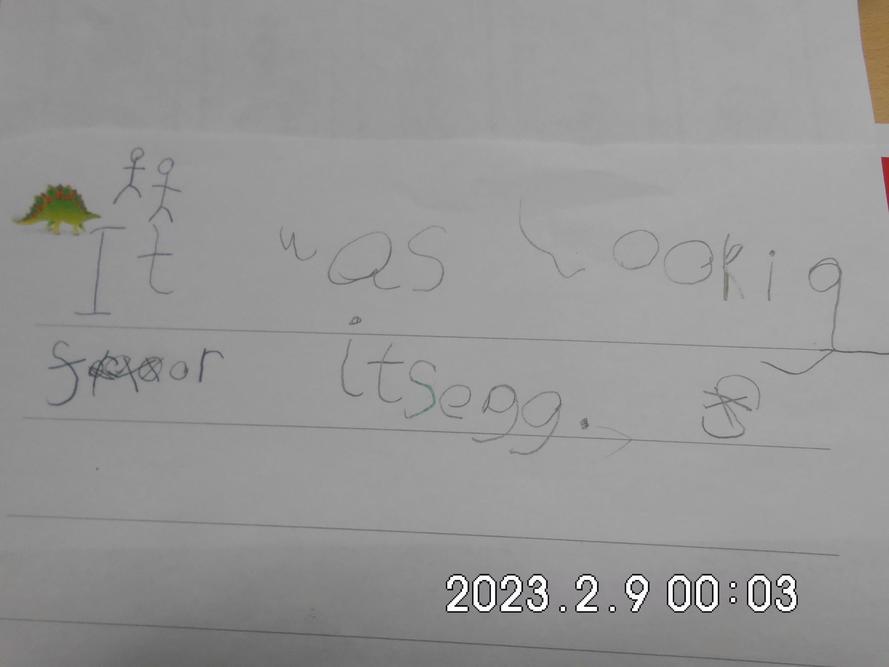 It was lookig
for itsegg.
2023.2.9 00:03